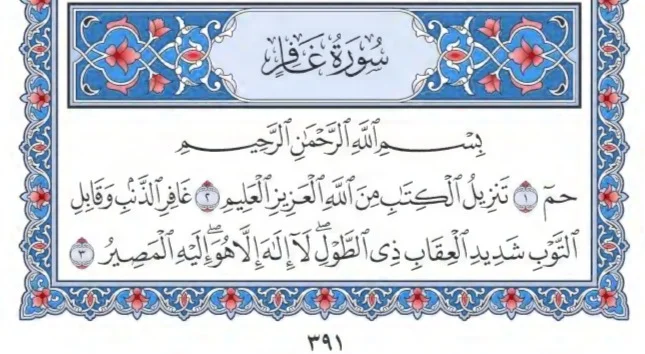 سُورَةُ غَافِرٍ
بِسْمِ ٱللَّهِ ٱلرَّحْمَٰنِ ٱلرَّحِيمِ
حمٓ ١ تَنزِيلُ ٱلْكِتَٰبِ مِنَ ٱللَّهِ ٱلْعَزِيزِ ٱلْعَلِيمِ ٢ غَافِرِ ٱلذَّنۢبِ وَقَابِلِ
ٱلتَّوْبِ شَدِيدِ ٱلْعِقَابِ ذِى ٱلطَّوْلِۖ لَآ إِلَٰهَ إِلَّا هُوَۖ إِلَيْهِ ٱلْمَصِيرُ ٣
٣٩١